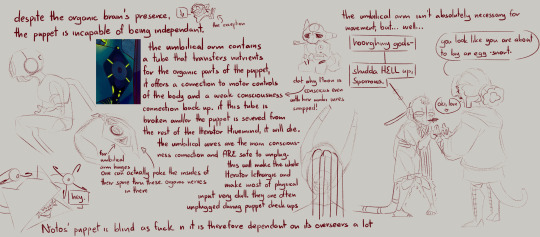 despite the organic brain's presence,
the puppet is incapable of being independant.
the umbilical arm contains
a tube that transfers nutrients
for the organic parts of the puppet,
it offers a connection to motor controls
of the body and a weak consciousness
connection back up. if this tube is
broken and/or the puppet is severed from
the rest of the Iterator Hivemind, it will die.
the umbilical wires are the main conscious-
ness connection and ARE safe to unplug.
this will make the whole
Iterator lethargic and
make most of physical
input very dull. they are often
unplugged during puppet check ups
for
umbilical
arm
one can actually poke the insides of
in there
hey.
Notos' puppet is blind as fuck n it is therefore dependant on its overseers a lot
the exception
conscious even
the umbilical arm isn't absolutely necessary for
movement, but... well...
shudda HELL up,
you look like you are about
to lay an egg -snort-